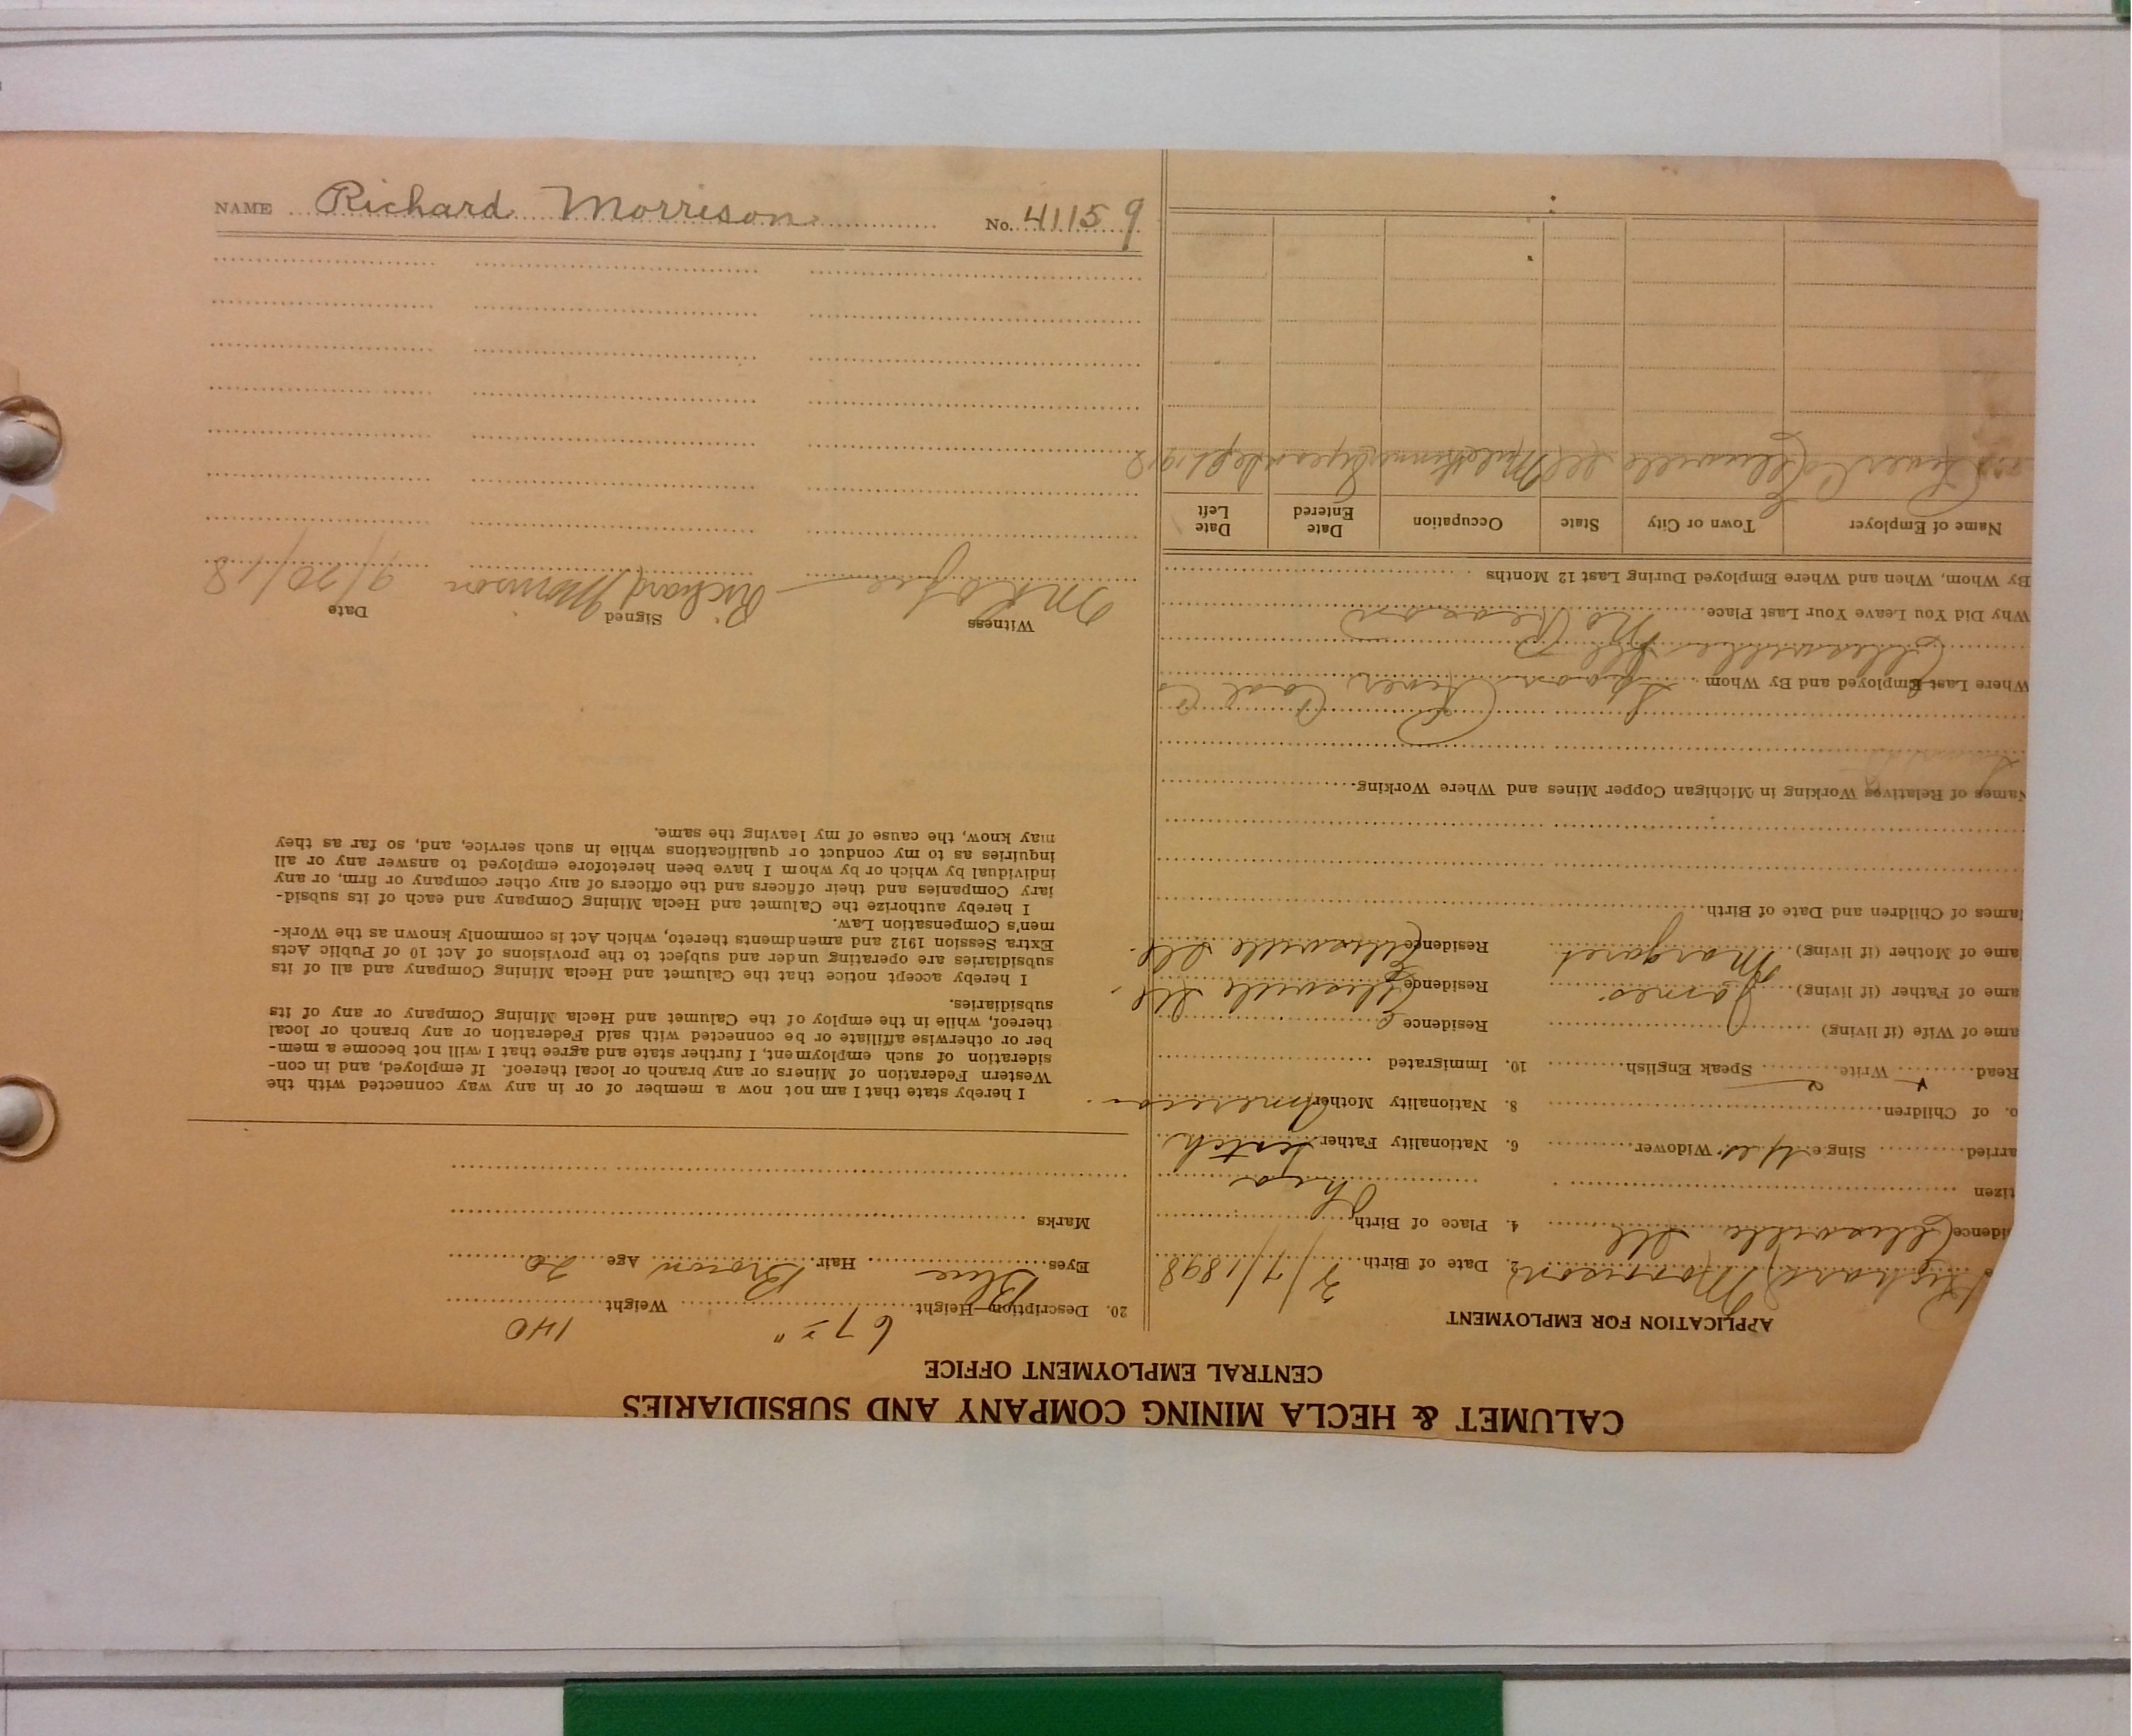 NAME Richard Morrison No. 41159
CALUMET & HECLA MINING COMPANY AND SUBSIDIARIES
CENTRAL EMPLOYMENT OFFICE
APPLICATION FOR EMPLOYMENT
Richard Morrison 2. Date of Birth 3/7/1898
idence Ellisville Ill 4. Place of Birth
tizen
arried Single Widower 6. Nationality Father Scotch
o. of Children 8. Nationality Mother American
Read Write Speak English 10. Immigrated
ame of Wife (if living) Residence
ame of Father (if living) James Residence Ellisville Ill.
ame of Mother (if living) Margaret Residence Ellisville Ill.
ames of Children and Date of Birth
Names of Relatives Working in Michigan Copper Mines and Where Working
Where Last Employed and By Whom Spoon River Coal Co
Ellisville Ill
Why Did You Leave Your Last Place No Reason
By Whom, When and Where Employed During Last 12 Months
Name of Employer Town or City State Occupation Date Entered Date Left
River Co Ellisville Ill Sept 1918
20. Description—Height 67" Weight 140
Eyes Blue Hair Brown Age 20
Marks
I hereby state that I am not now a member of or in any way connected with the
Western Federation of Miners or any branch or local thereof. If employed, and in con-
sideration of such employment, I further state and agree that I will not become a mem-
ber or otherwise affiliate or be connected with said Federation or any branch or local
thereof, while in the employ of the Calumet and Hecla Mining Company or any of its
subsidiaries.
I hereby accept notice that the Calumet and Hecla Mining Company and all of its
subsidiaries are operating under and subject to the provisions of Act 10 of Public Acts
Extra Session 1912 and amendments thereto, which Act is commonly known as the Work-
men's Compensation Law.
I hereby authorize the Calumet and Hecla Mining Company and each of its subsid-
iary Companies and their officers and the officers of any other company or firm, or any
individual by which or by whom I have been heretofore employed to answer any or all
inquiries as to my conduct or qualifications while in such service, and, so far as they
may know, the cause of my leaving the same.
Witness Signed Date
Richard Morrison 9/20/18